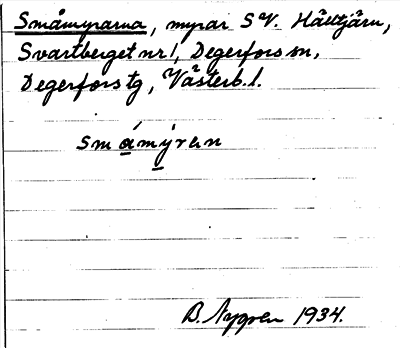 Småmyrarna, myrar S V. Hälltjärn,
Svartberget nr 1, Degerfors sn,
Degerfors tg, Västerb. l.
småmýran
B. Nygren 1934.